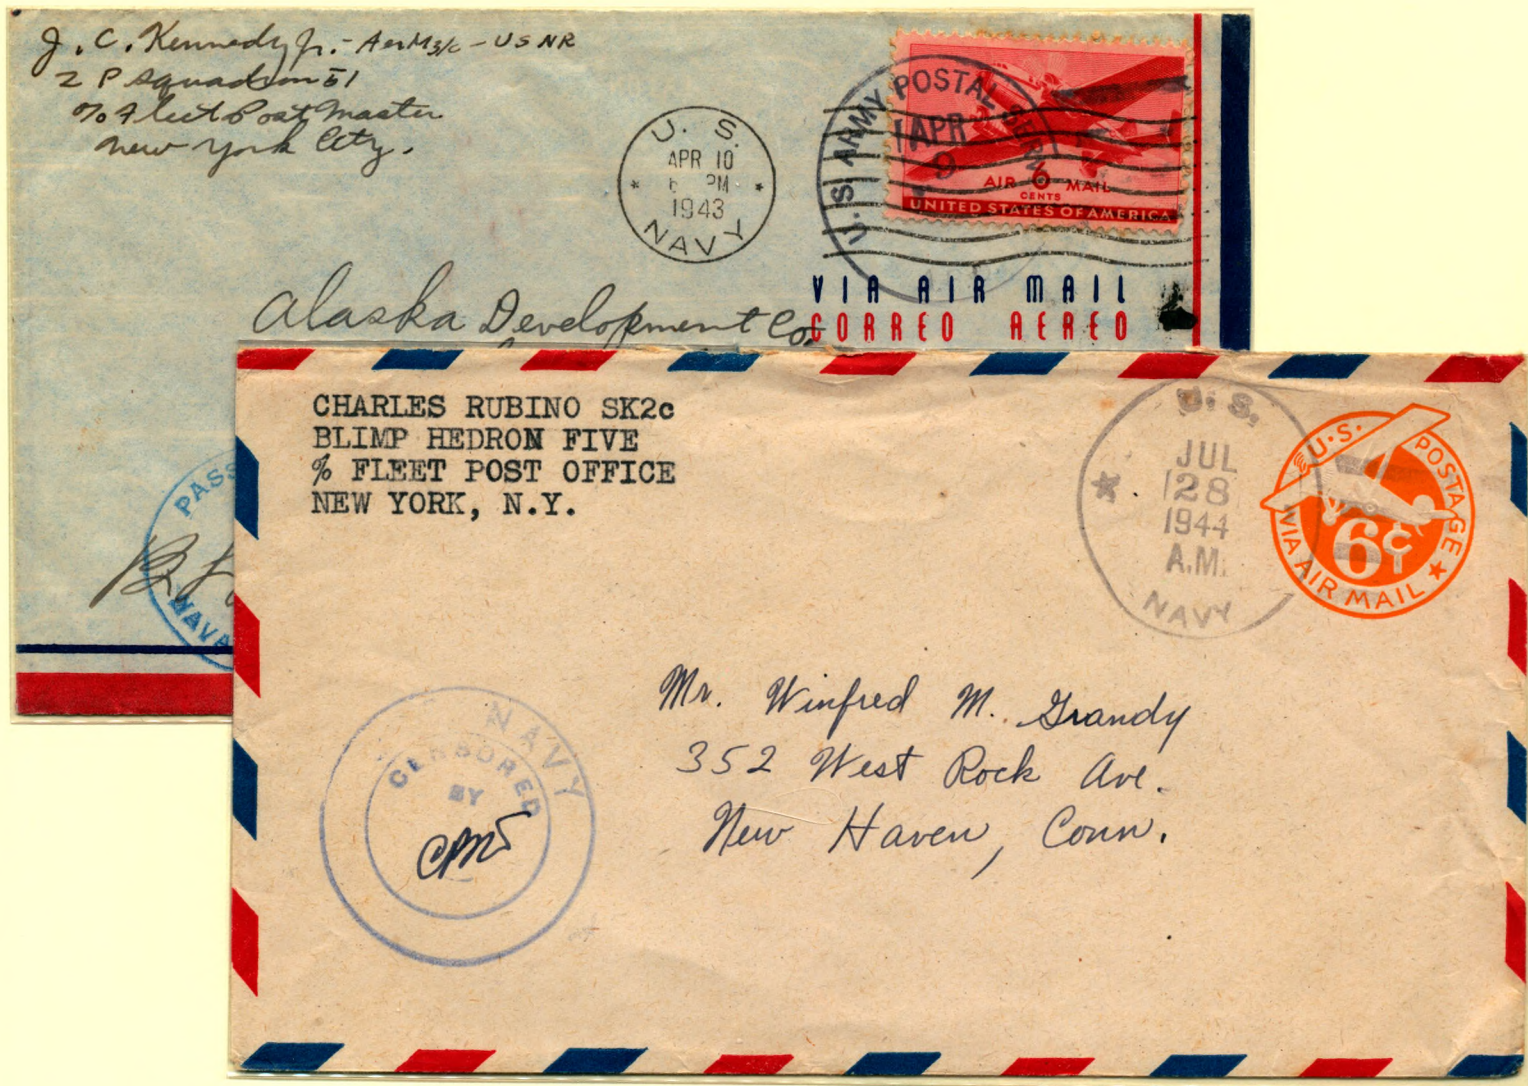 J. C. Kennedy Jr. - AerM3/c - USNR
Z P Squadron 51
% Fleet Post Master
New York City.
U. S.
APR 10
PM
1943
NAVY
U. S. ARMY POSTAL SERV
APR
9
AIR 6 MAIL
CENTS
UNITED STATES OF AMERICA
VIA AIR MAIL
CORREO AEREO
Alaska Development Co.
PASS
NAVA
CHARLES RUBINO SK2c
BLIMP HEDRON FIVE
% FLEET POST OFFICE
NEW YORK, N.Y.
U. S.
JUL
28
1944
A.M.
NAVY
U.S. POSTAGE
6¢
VIA AIR MAIL
Mr. Winfred M. Grandy
352 West Rock Ave.
New Haven, Conn.
NAVY
CENSORED
BY